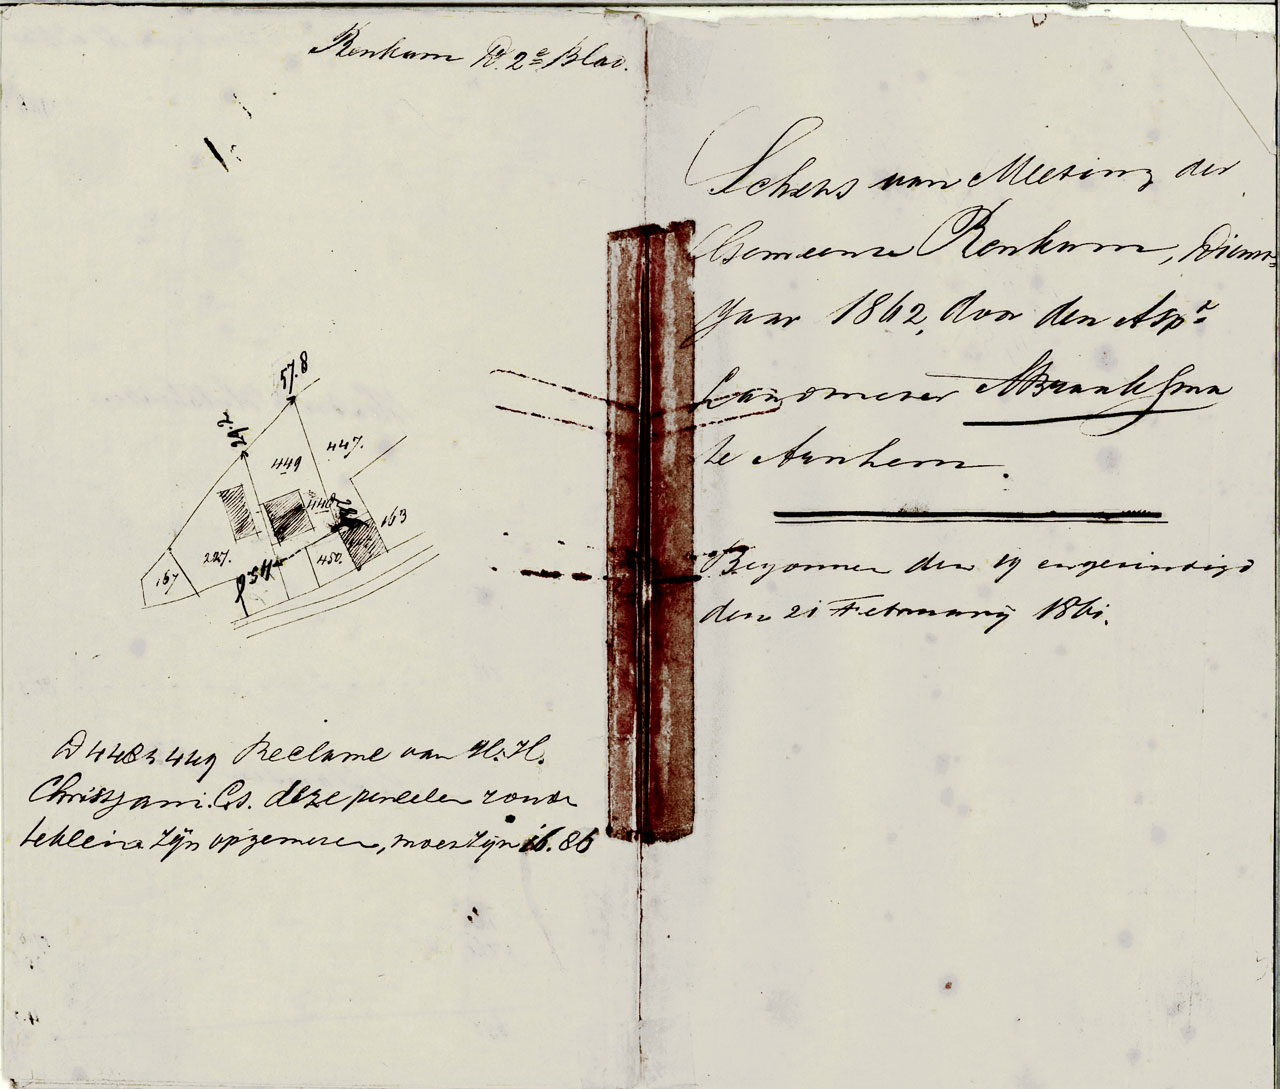 Renkum D. 2e Blad.
57.8
29.2
447.
449
448
163
227.
450.
167
45.8
D 448 & 449 Reclame van H. H.
Christjani. Cs. deze perceelen zoude
te klein zijn opgemeten, moet zijn 16.86
Schets van Meeting der
Gemeente Renkum, Dienst=
jaar 1862, door den Aspt
Landmeter
te Arnhem.
Begonnen den 19 en geeindigd
den 21 February 1861.